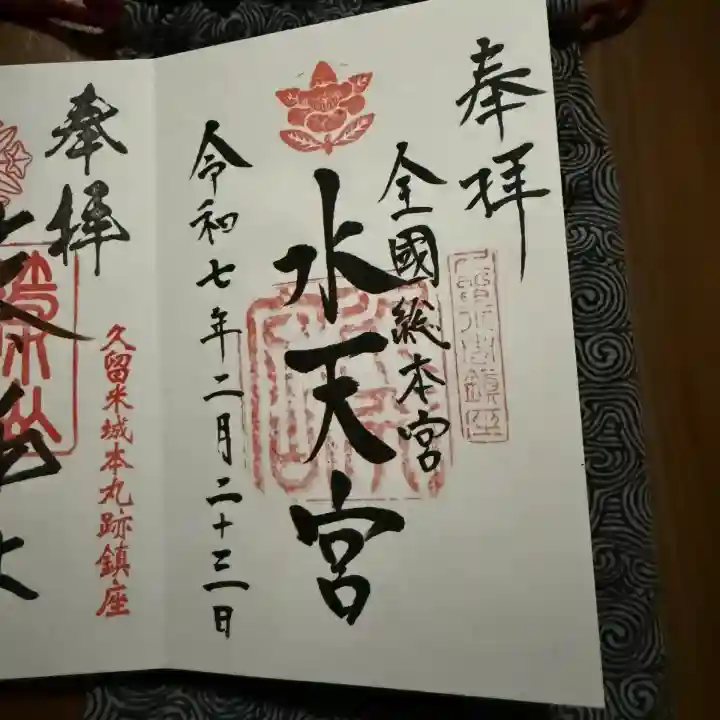 奉拝
全國総本宮
水天宮
令和七年二月二十三日
奉拝
久留米城本丸跡鎮座